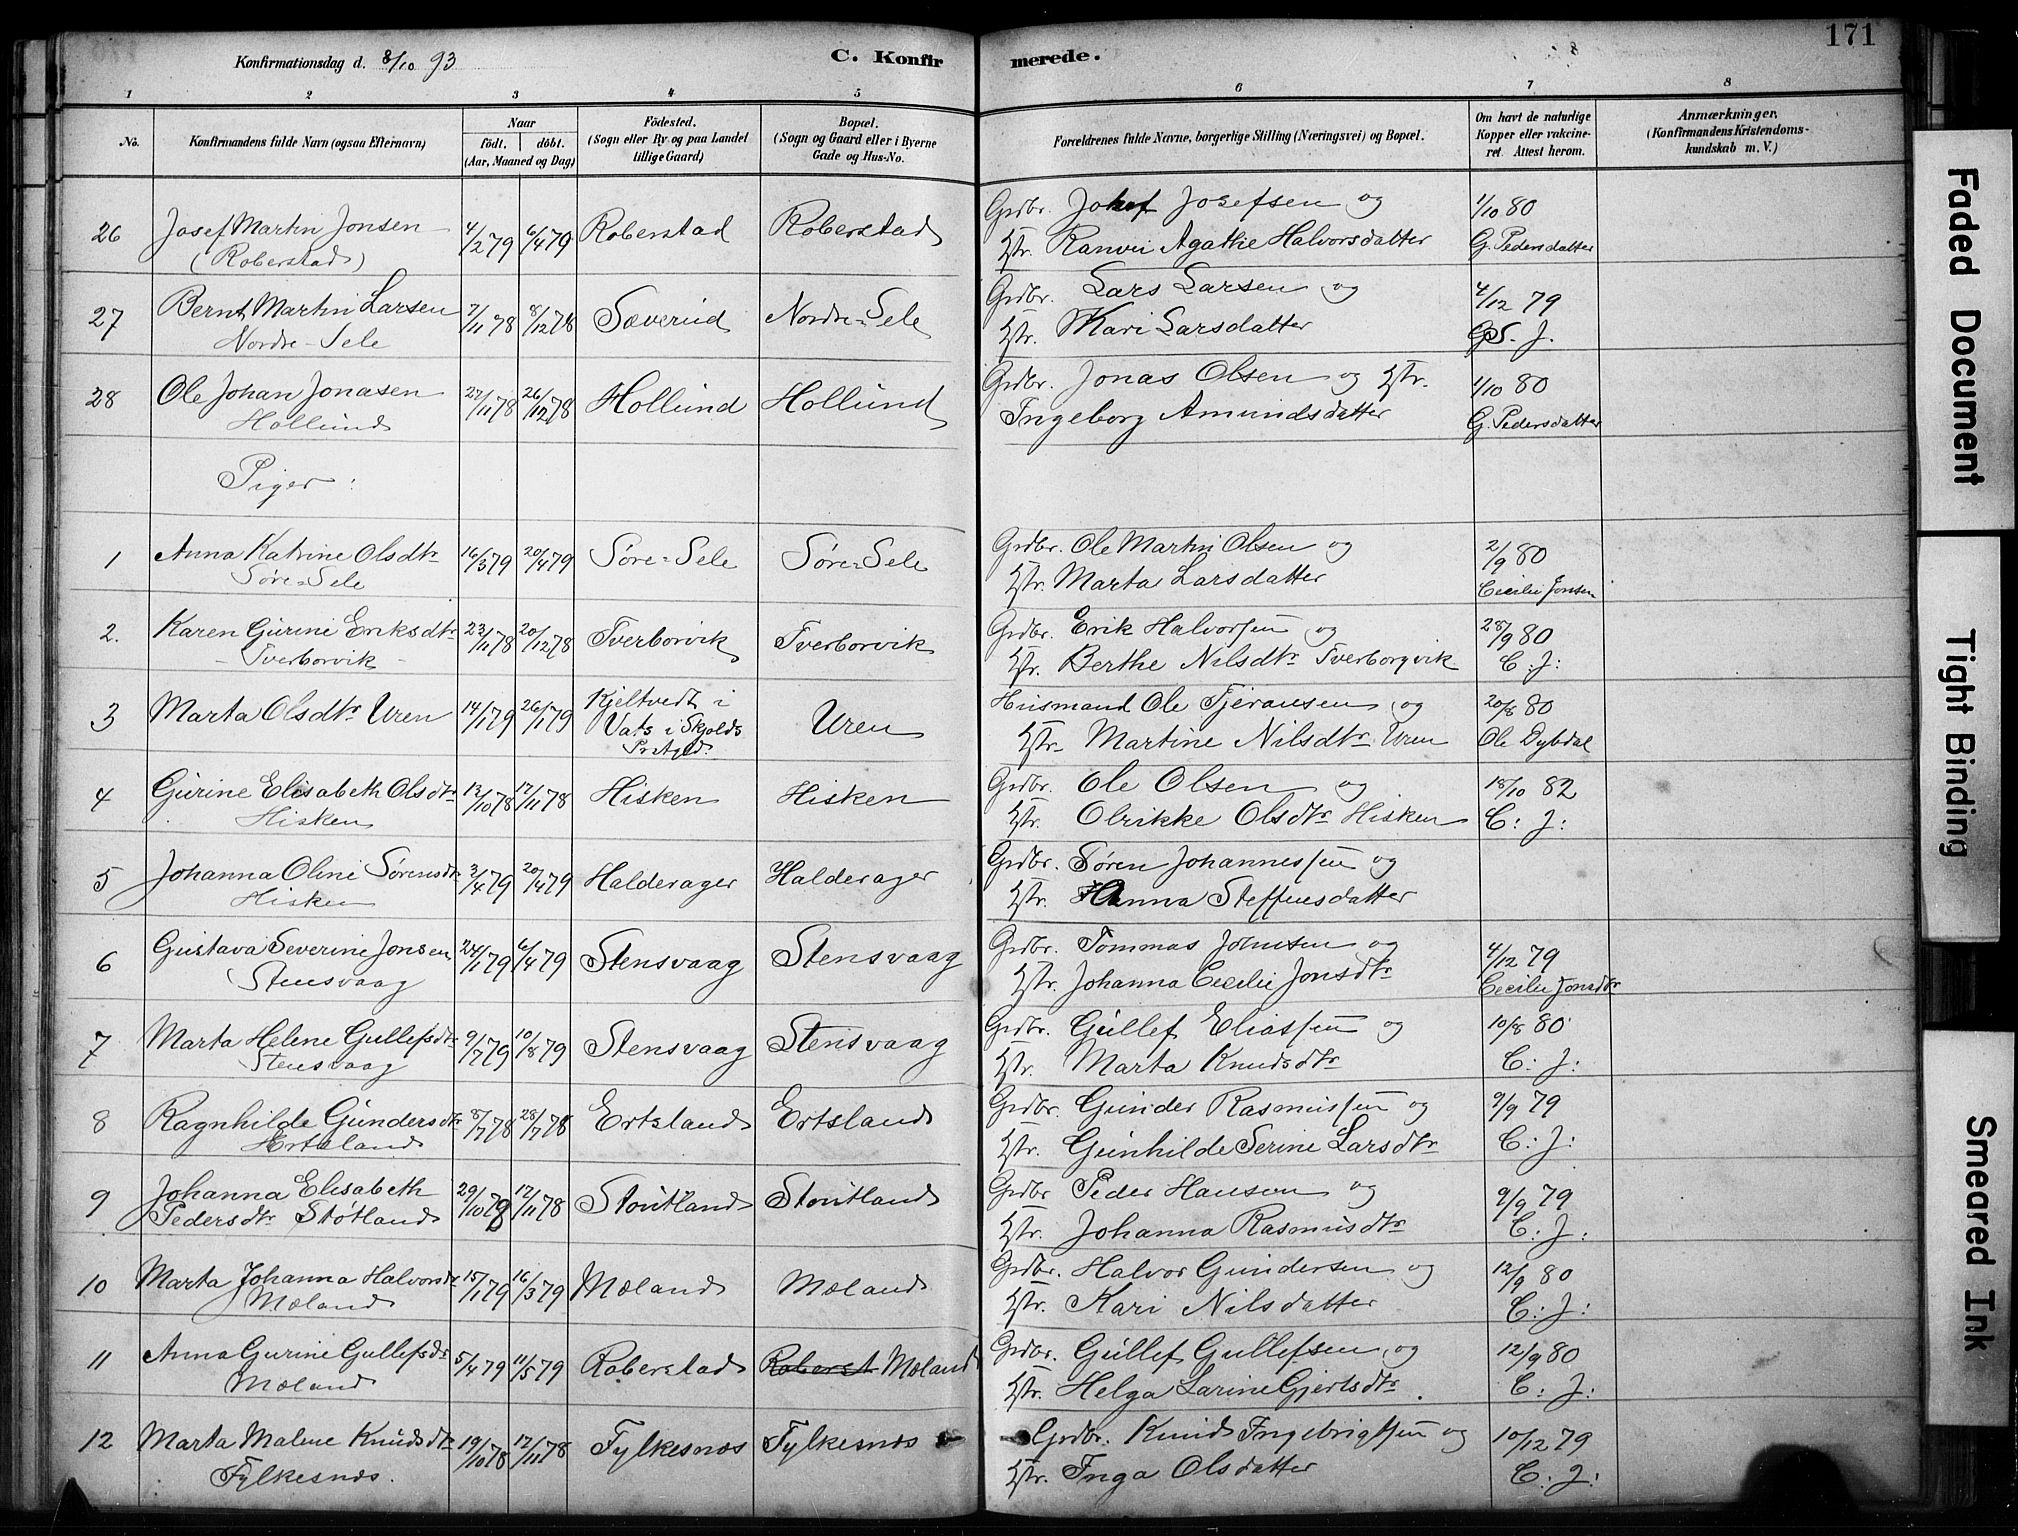 171
Konfirmationsdag d. 8/10 93
C. Konfirmerede.
1 2 3 4 5 6 7 8
No.
Konfirmandens fulde Navn (ogsaa Efternavn)
Naar
födt. döbt.
(Aar, Maaned og Dag)
Födested.
(Sogn eller By og paa Landet
tillige Gaard)
Bopæl.
(Sogn og Gaard eller i Byerne
Gade og Hus-No.
Forældrenes fulde Navne, borgerlige Stilling (Næringsvei) og Bopæl.
Om havt de naturlige
Kopper eller vakcine-
ret. Attest herom.
Anmærkninger.
(Konfirmandens Kristendoms-
kundskab m. V.)
26 Josef Martin Jonsen 4/2 79 6/4 79 Roberstad Roberstad Grdbr. Josefsen og 1/10 80
(Roberstad) Hstr. Ranvei Agathe Halvorsdatter G. Pedersdatter
27 Bernt Martin Larsen 7/11 78 8/12 78 Sæverud Nordre-Sele Grdbr. Lars Larsen og 4/12 79
Nordre-Sele Hstr. Kari Larsdatter J.
28 Ole Johan Jonasen 27/11 78 26/12 78 Hollund Hollund Grdbr. Jonas Olsen og Hstr. 1/10 80
Hollund Ingeborg Amundsdatter G. Pedersdatter
Piger:
1 Anna Katrine Olsdtr 16/3 79 20/4 79 Søre-Sele Søre-Sele Grdbr. Ole Martin Olsen og 2/9 80
Søre-Sele Hstr. Marta Larsdatter Cecilie Jonsen
2. Karen Gurine Eriksdtr 23/11 78 20/12 78 Tverborvik Tverborvik Grdbr. Erik Halvorsen og 28/9 80
- Tverborvik - Hstr. Berthe Nilsdtr Tverborgvik C: J:
3 Marta Olsdtr Uren 14/1 79 26/1 79 Kjeltvedt i Uren Husmand Ole Tjeransen og 20/8 80
Vats i Skjolds
Prstgjld. Hstr. Martine Nilsdtr Uren Ole Dybdal
4 Gurine Elisabeth Olsdtr 13/10 78 17/11 78 Hisken Hisken Grdbr. Ole Olsen og 18/10 82
Hisken Hstr. Olrikke Olsdtr Hisken C: J:
5 Johanna Oline Sørensdtr 3/4 79 20/4 79 Halderager Halderager Grdbr. Søren Johannessen og
Hisken Hstr. Hanna Steffensdatter
6 Gustava Severine Jonsen 24/1 79 6/4 79 Stensvaag Stensvaag Grdbr. Tommas Johnsen og 4/12 79
Stensvaag Hstr. Johanna Cecilie Jonsdtr Cecilie Jonsdtr
7 Marta Helene Gullefsdtr 9/7 79 10/8 79 Stensvaag Stensvaag Grdbr. Gullef Eliassen og 10/8 80
Stensvaag Hstr. Marta Knudsdtr C: J:
8 Ragnhilde Gundersdtr 8/7 78 28/7 78 Ertsland Ertsland Grdbr. Gunder Rasmussen og 9/9 79
Ertsland Hstr. Gunhilde Serine Larsdtr C: J:
9 Johanna Elisabeth 29/10 78 17/11 78 Stoutland Stoutland Grdbr Peder Hansen og 9/9 79
Pedersdtr Støtland Hstr. Johanna Rasmusdtr C: J:
10 Marta Johanna Halvorsdtr 15/1 79 16/3 79 Mæland Mæland Grdbr. Halvor Gundersen og 12/9 80
Mæland Hstr. Kari Nilsdatter C: J:
11 Anna Gurine Gullefsdr 5/4 79 11/5 79 Roberstad Roberst Mæland Grdbr. Gullef Gullefsen og 12/9 80
Mæland Hstr. Helga Larine Gjertsdtr. C: J:
12 Marta Malene Knudsdtr 19/10 78 17/11 78 Fylkesnæs Fylkesnæs Grdbr. Knud Ingebrigtsen og 10/12 79
Fylkesnæs. Hstr. Inga Olsdatter C: J:
Faded Document
Tight Binding
Smeared Ink